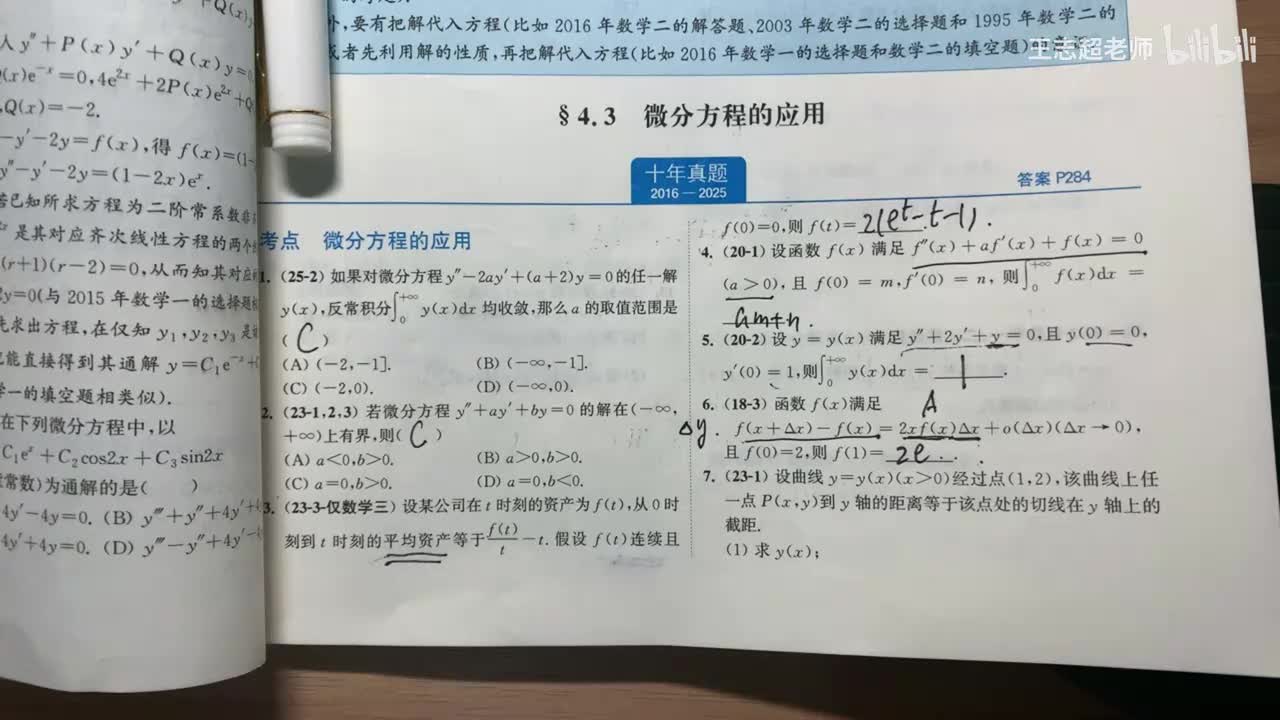 外,要有把解代入方程(比如 2016 年数学二的解答题、2003 年数学二的选择题和 1995 年数学二的
或者先利用解的性质,再把解代入方程(比如 2016 年数学一的选择题和数学二的填空题)
王志超老师 bilibili
人 y″+P(x)y′+Q(x)y=0
(x)e⁻ˣ=0,4e²ˣ+2P(x)e²ˣ+Q
,Q(x)=-2.
-y′-2y=f(x),得 f(x)=(1-
y″-y′-2y=(1-2x)eˣ.
若已知所求方程为二阶常系数非
是其对应齐次线性方程的两个
(r+1)(r-2)=0,从而知其对应
2y=0(与 2015 年数学一的选择题
先求出方程,在仅知 y₁,y₂,y₃ 是
能直接得到其通解 y=C₁e⁻ˣ+
学一的填空题相类似).
在下列微分方程中,以
C₁eˣ+C₂cos2x+C₃sin2x
常数)为通解的是( )
4y′-4y=0. (B) y‴+y″+4y′+
4y′+4y=0. (D) y‴-y″+4y′-
§4.3 微分方程的应用
十年真题
2016—2025
答案 P284
考点 微分方程的应用
1. (25-2) 如果对微分方程 y″-2ay′+(a+2)y=0 的任一解
y(x),反常积分∫₀⁺∞ y(x)dx 均收敛,那么 a 的取值范围是
( C )
(A) (-2,-1]. (B) (-∞,-1].
(C) (-2,0). (D) (-∞,0).
2. (23-1,2,3) 若微分方程 y″+ay′+by=0 的解在(-∞,
+∞)上有界,则( C )
(A) a<0,b>0. (B) a>0,b>0.
(C) a=0,b>0. (D) a=0,b<0.
3. (23-3-仅数学三) 设某公司在 t 时刻的资产为 f(t),从 0 时
刻到 t 时刻的平均资产等于 f(t)/t -t. 假设 f(t)连续且
f(0)=0,则 f(t)= 2(eᵗ-t-1).
4. (20-1) 设函数 f(x) 满足 f″(x)+af′(x)+f(x)=0
(a>0),且 f(0)=m,f′(0)=n,则∫₀⁺∞ f(x)dx=
am+n.
5. (20-2) 设 y=y(x) 满足 y″+2y′+y=0,且 y(0)=0,
y′(0)=1,则∫₀⁺∞ y(x)dx= 1 .
6. (18-3) 函数 f(x)满足 A
Δy. f(x+Δx)-f(x)=2xf(x)Δx+o(Δx)(Δx→0),
且 f(0)=2,则 f(1)= 2e .
7. (23-1) 设曲线 y=y(x)(x>0)经过点(1,2),该曲线上任
一点 P(x,y)到 y 轴的距离等于该点处的切线在 y 轴上的
截距.
(1) 求 y(x);